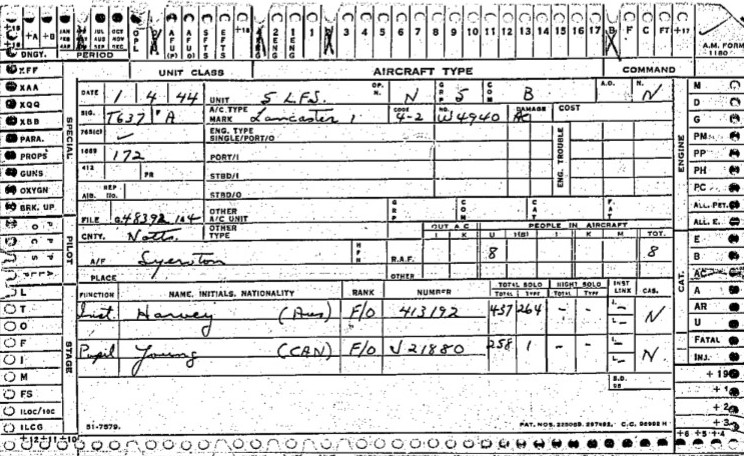 +A +B JAN FEB MAR JUL AUG SEP OCT NOV DEC OPL AFU (P) AFU (O) SFTS EFTS +18 2 ENG 1 ENG 1 3 4 5 6 7 8 9 10 11 12 13 14 15 16 17 B F C FT +17
DNGY. PERIOD A.M. FORM 1180
XFF UNIT CLASS AIRCRAFT TYPE COMMAND
XAA DATE 1 4 44 UNIT 5 L.F.S. OP. N. N GRP 5 COM B A.O. N. N M
XQQ SIG. T637 P A A/C TYPE MARK Lancaster 1 CODE 4-2 NO. W4940 DAMAGE AC COST D
XBB 765(C) ENG. TYPE SINGLE/PORT/O G
PARA. PM
PROPS 1669 172 PORT/I ENG. TROUBLE ENGINE PP
GUNS 412 PR STBD/I PH
OXYGN AIB. REP. NO. STBD/O PC
BRK. UP SPECIAL OTHER A/C UNIT GRP COM CAT FAT ALL. PET.
FILE OTHER TYPE OUT A/C PEOPLE IN AIRCRAFT ALL. E.
CNTY. Notts I K U I(B) I K M TOT. E
PILOT A/F Syerston HFH R.A.F. 8 8 B
PLACE OTHER CAT. AC
L FUNCTION NAME, INITIALS, NATIONALITY RANK NUMBER TOTAL SOLO TOTAL TYPE NIGHT SOLO TOTAL TYPE INST LINK CAS. A
T Inst. Harvey (Aus) F/O 413192 437 264 - - I_ L_ N AR
O U
F Pupil Young (CAN) F/O J21880 258 1 - - I_ L_ N. FATAL
I STAGE INJ.
M S.D. 98 + 19
FS + 1
ILOC/IOC + 2
ILCG 51-7579. PAT. NOS. + 3
+12 +11 +10 +6 +5 +4